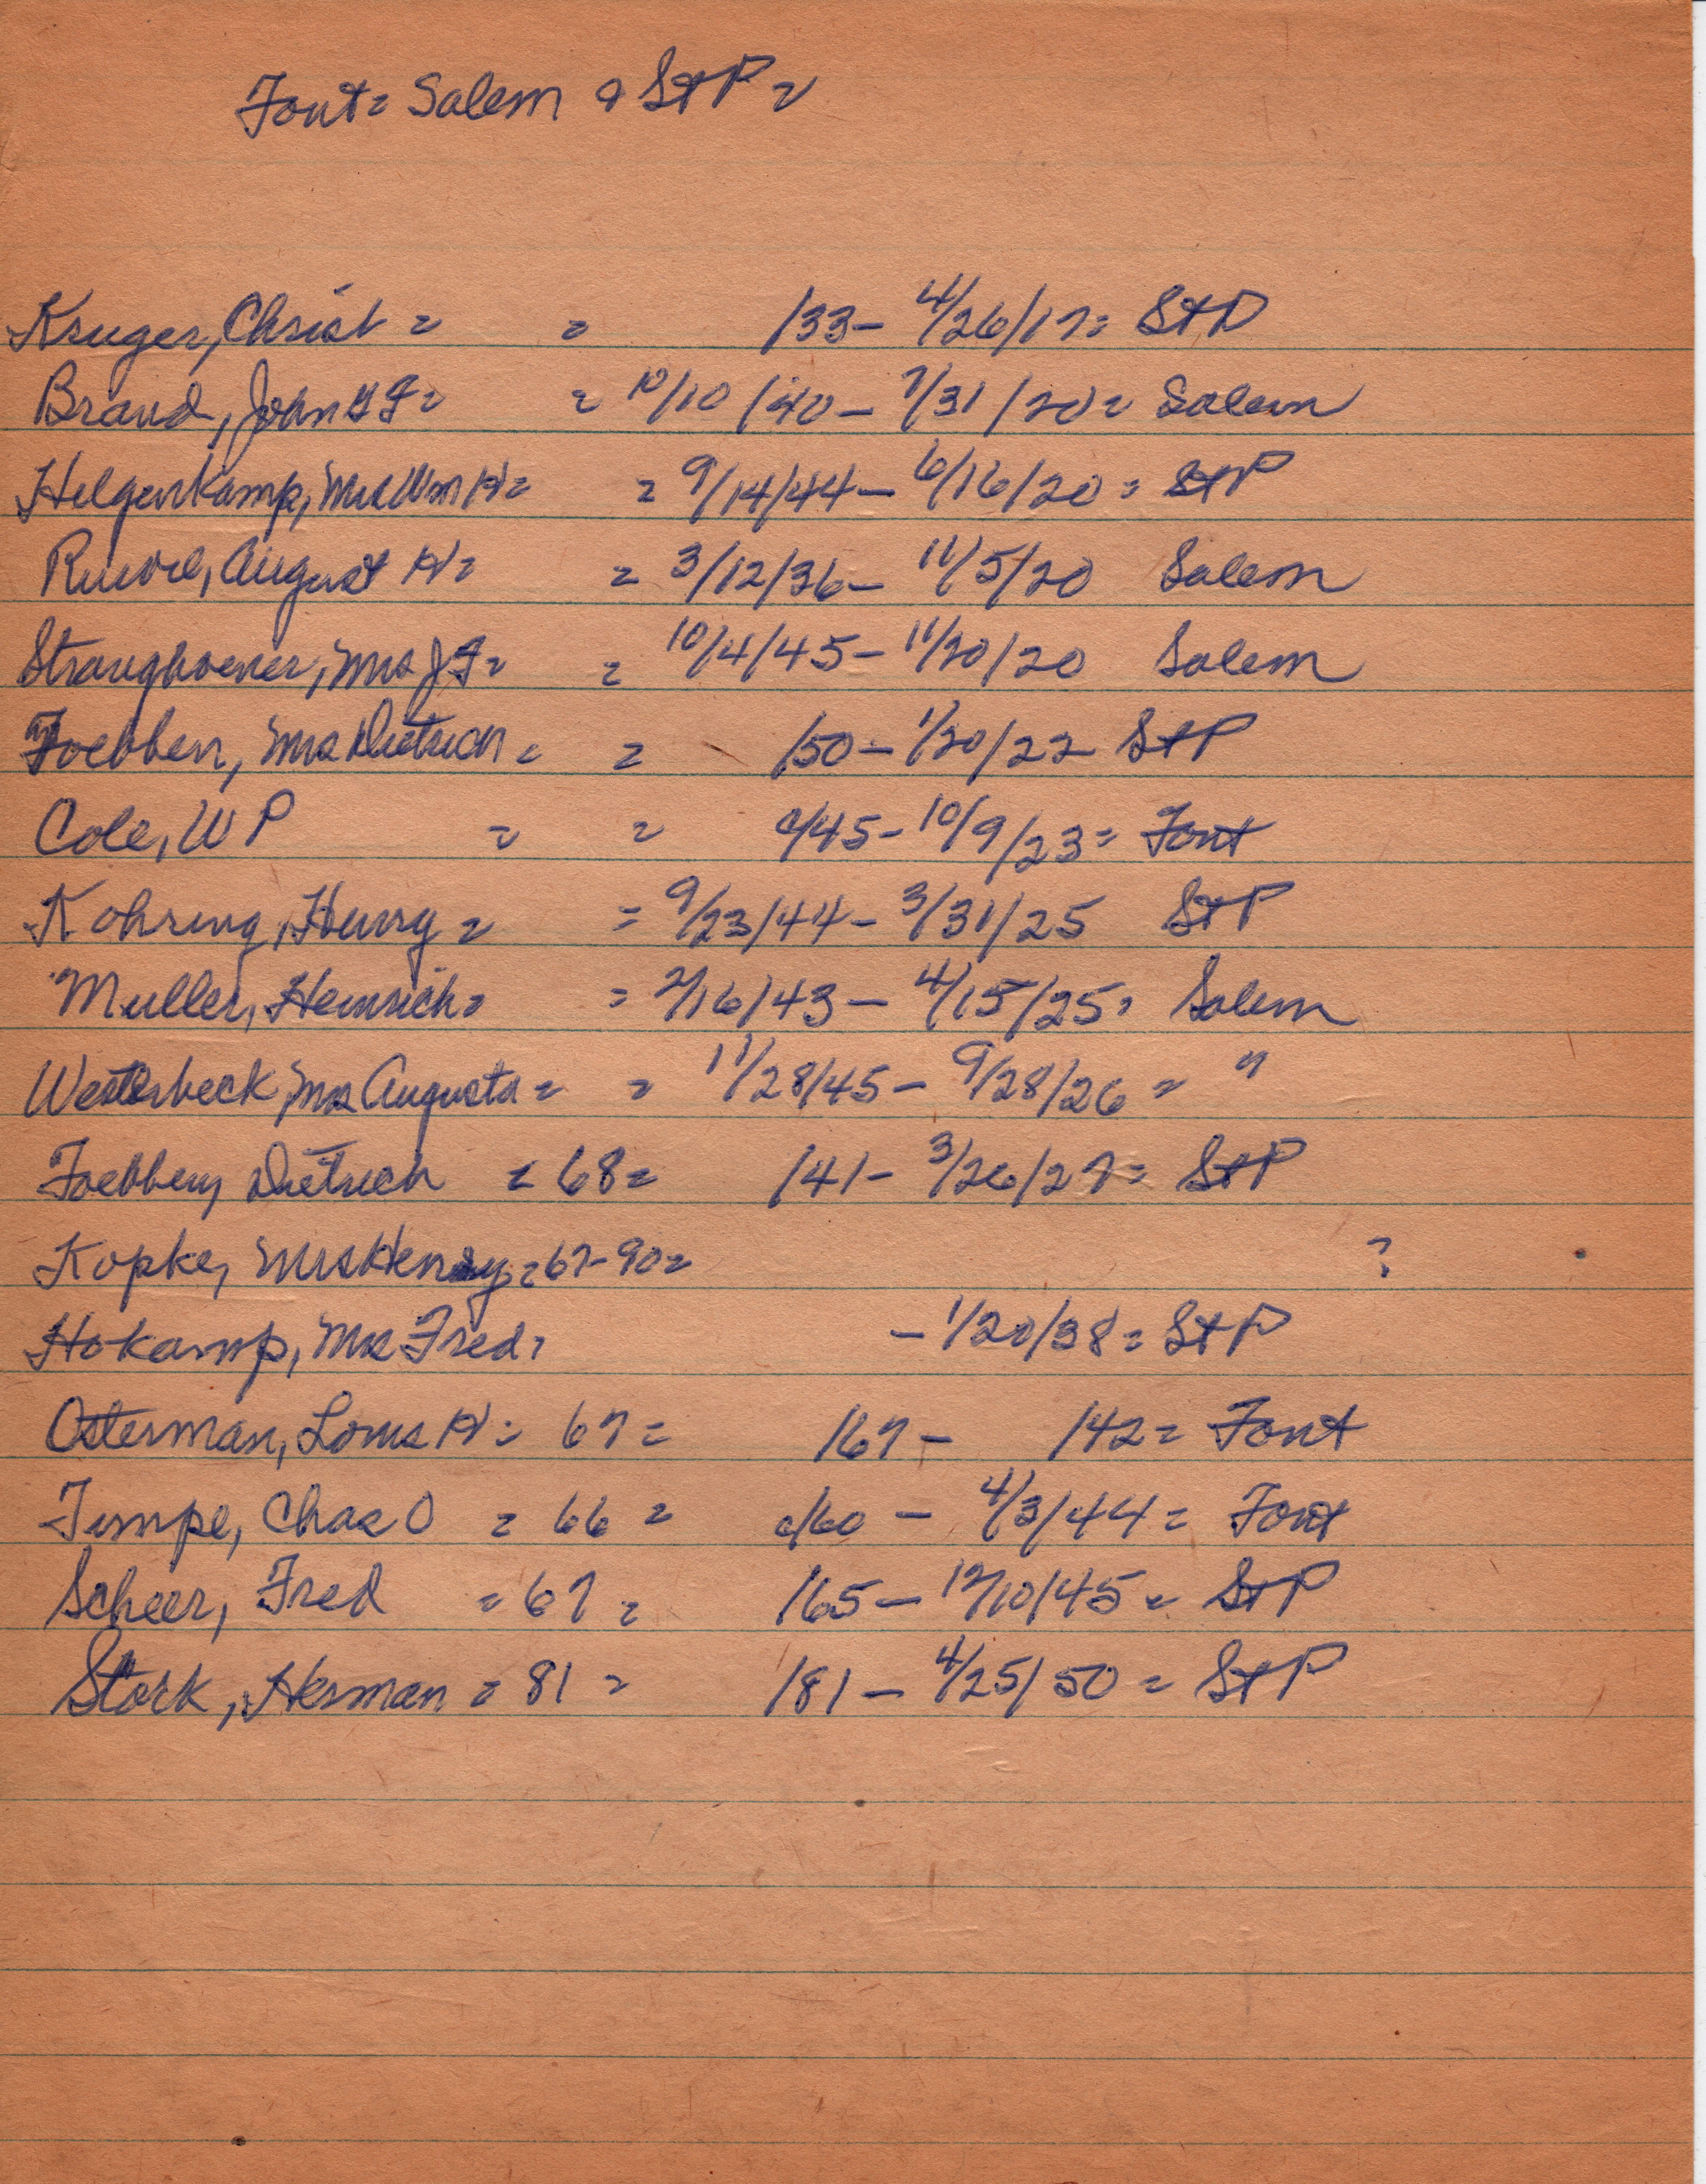 Font = Salem & StP =
Kruger, Christ = = /33 - 4/26/17 = StP
Brand, John G F = = 10/10/40 - 7/31/20 = Salem
Helgenkamp, Mrs Wm H = = 9/14/44 - 6/16/20 = StP
August H = = 3/12/36 - 11/5/20 Salem
Stranghoener, Mrs J F = = 10/4/45 - 11/20/20 Salem
Foebben, Mrs Dietrich = = /50 - 1/20/22 StP
Cole, W P = = c/45 - 10/9/23 = Font
Kohring, Henry = = 9/23/44 - 3/31/25 StP
Muller, Heinrich = = 2/16/43 - 4/15/25 = Salem
Westerbeck, Mrs Augusta = = 11/28/45 - 9/28/26 = "
Foebben, Dietrich = 68 = /41 - 3/26/27 = StP
Kopke, Mrs Henry = 67-90 = ?
Hokamp, Mrs Fred = - 1/20/38 = StP
Osterman, Louis H = 67 = /67 - /42 = Font
Timpe, Chas O = 66 = c/60 - 4/3/44 = Font
Scheer, Fred = 67 = /65 - 12/10/45 = StP
Stork, Herman = 81 = /81 - 4/25/50 = StP